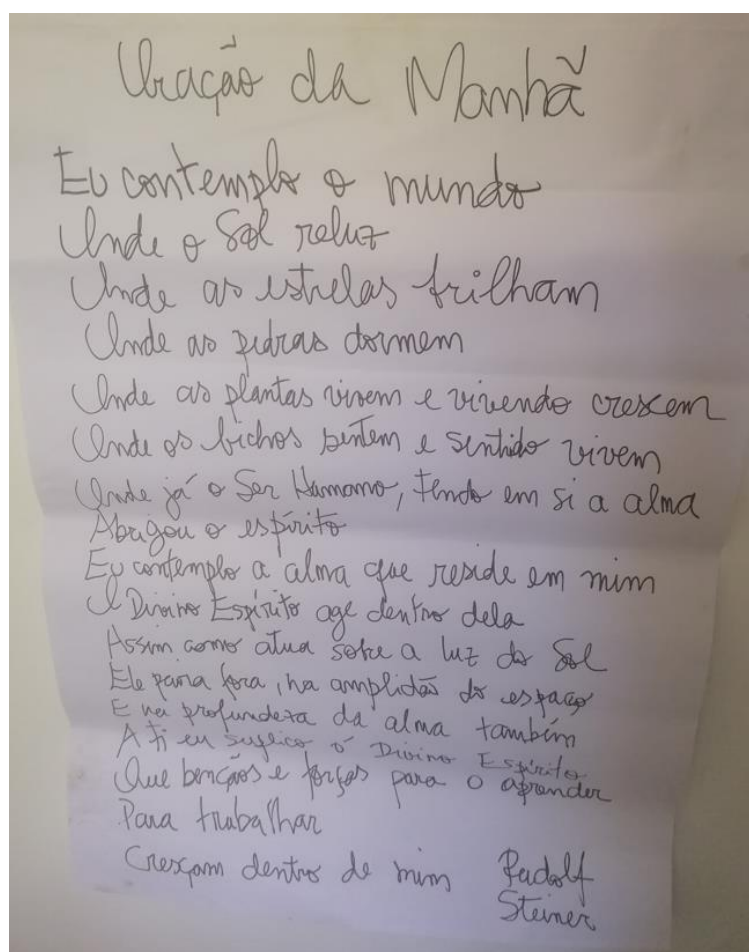 Oração da Manhã
Eu contemplo o mundo
Onde o Sol reluz
Onde as estrelas brilham
Onde as pedras dormem
Onde as plantas vivem e vivendo crescem
Onde os bichos sentem e sentido vivem
Onde já o Ser Humano, tendo em si a alma
Abrigou o espírito
Eu contemplo a alma que reside em mim
O Divino Espírito age dentro dela
Assim como atua sobre a luz do Sol
Ele paira fora, na amplidão do espaço
E na profundeza da alma também
A ti eu suplico ó Divino Espírito
Que bençãos e forças para o aprender
Para trabalhar
Cresçam dentro de mim Rudolf
Steiner